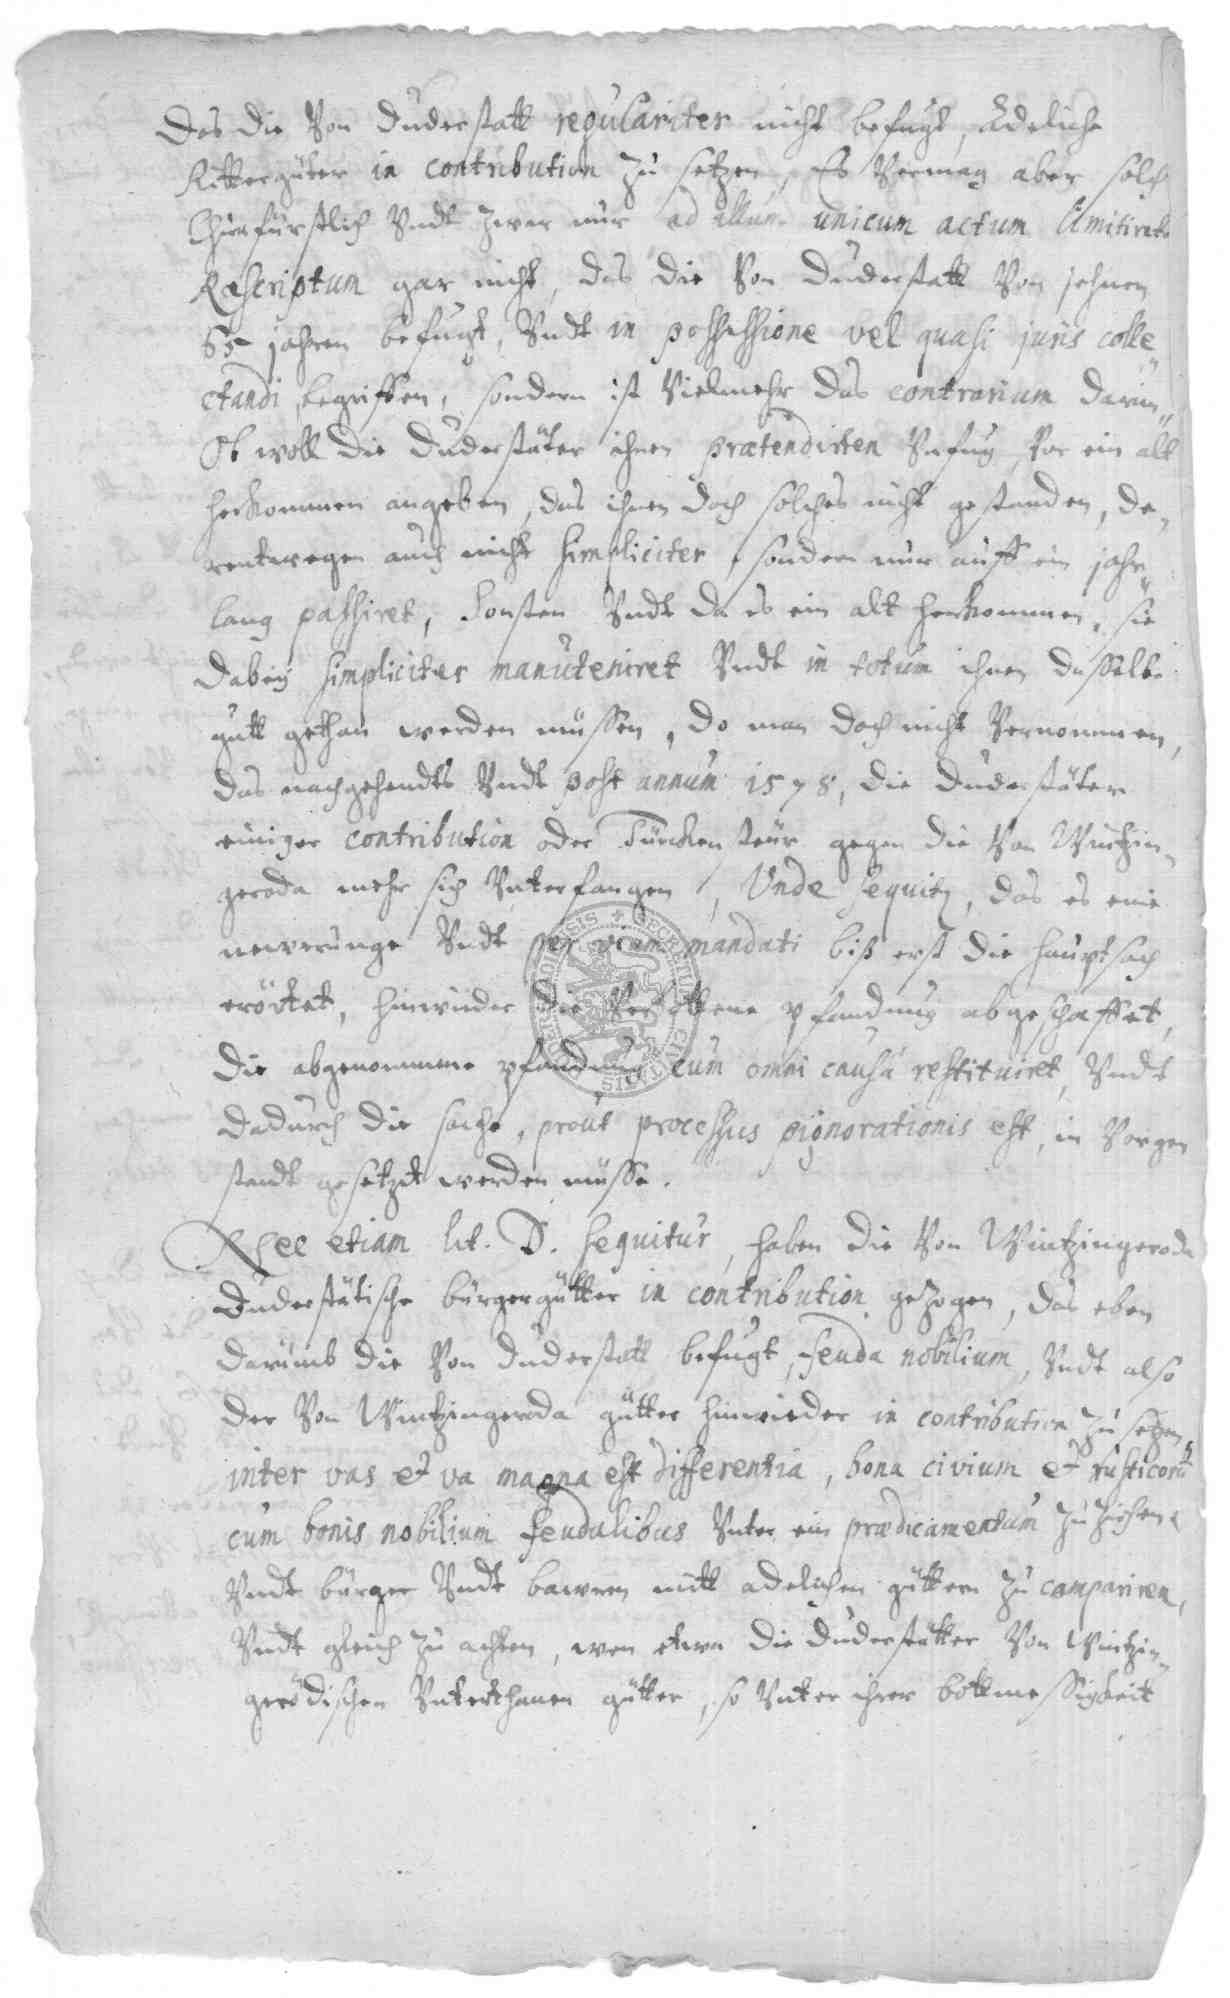 Das die Von Duderstatt regulariter nicht befugt, Adeliche
Rittergüter in contribution zu setzen, Es Vermag aber solch
Churfürstlich Vndt zwar nur ad illum unicum actum limitirtes
Rescriptum gar nicht, das die Von Duderstatt Von jehnen
55 jahren befugt, Vndt in possessione vel quasi juris colle„
ctandi begriffen, sondern ist Vielmehr das contrarium darin„
Ob woll die Duderstäter ihnen prætendirten Vnfug, Vor ein alt
herkommen angeben, das ihnen doch solches nicht gestanden, de„
rentwegen auch nicht simpliciter, sondern nur auff ein jahr
lang passiret, Sonsten Vndt da es ein alt herkommen, sie
dabeÿ simpliciter manuteniret Vndt in totum ihnen dasselbe
gutt gethan werden müssen, do man doch nicht Vernommen,
das nachgehendts Vndt post annum 1578, die Duderstäter
einiger contribution oder Türcken steur gegen die Von Wintzin„
geroda mehr sich Vnterfangen, Unde sequitur, das es eine
newerunge Vndt per viam mandati biß erst die hauptsach
erörtet, hinwieder die pfandung abgeschaffet,
die abgenommene pfandung cum omni causâ restituiret, Vndt
dadurch die sache, prout processus pignorationis est, in Vorgen
standt gesetzet werden müsse.
Nec etiam lit. D. sequitur, haben die Von Wintzingeroda
Duderstätische bürgergütter in contribution gezogen, das eben
darumb die Von Duderstatt befugt, feuda nobilium, Vndt also
der Von Wintzingeroda gütter hinwieder in contribution zu setzen,
inter vas et va magna est differentia, bona civium et rusticorum
cum bonis nobilium feudalibus Vnter ein prædicamentum zu ziehen,
Vndt bürger Vndt bawren mitt adelichen güttern zu compariren,
Vndt gleich zu achten, wen etwa die Duderstätter Von Wintzin„
gerödischen Vnterthanen gütter, so Vnter ihrer bottmessigkeit